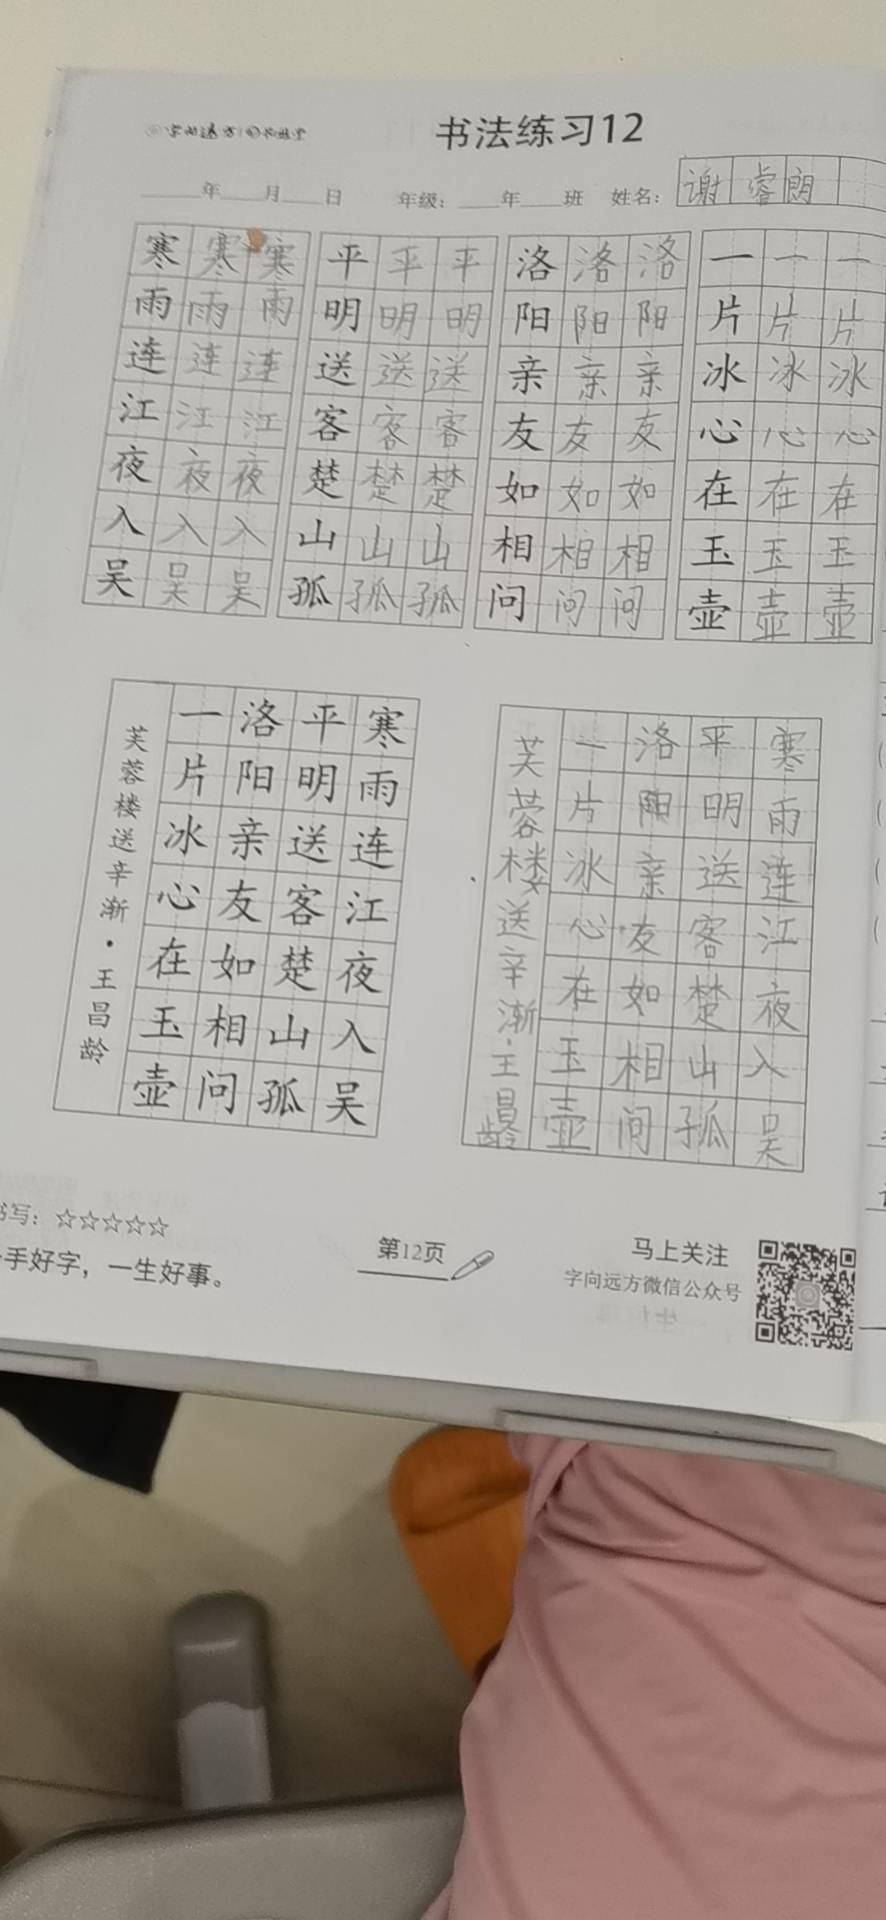 书法练习12
____年____月____日 年级：____年____班 姓名：谢睿朗
寒寒寒 平平平 洛洛洛 一一一
雨雨雨 明明明 阳阳阳 片片片
连连连 送送送 亲亲亲 冰冰冰
江江江 客客客 友友友 心心心
夜夜夜 楚楚楚 如如如 在在在
入入入 山山山 相相相 玉玉玉
吴吴吴 孤孤孤 问问问 壶壶壶
寒雨连江夜入吴
平明送客楚山孤
洛阳亲友如相问
一片冰心在玉壶
芙蓉楼送辛渐·王昌龄
寒雨连江夜入吴
平明送客楚山孤
洛阳亲友如相问
一片冰心在玉壶
芙蓉楼送辛渐·王昌龄
书写：☆☆☆☆☆
手好字，一生好事。
第12页
马上关注
字向远方微信公众号